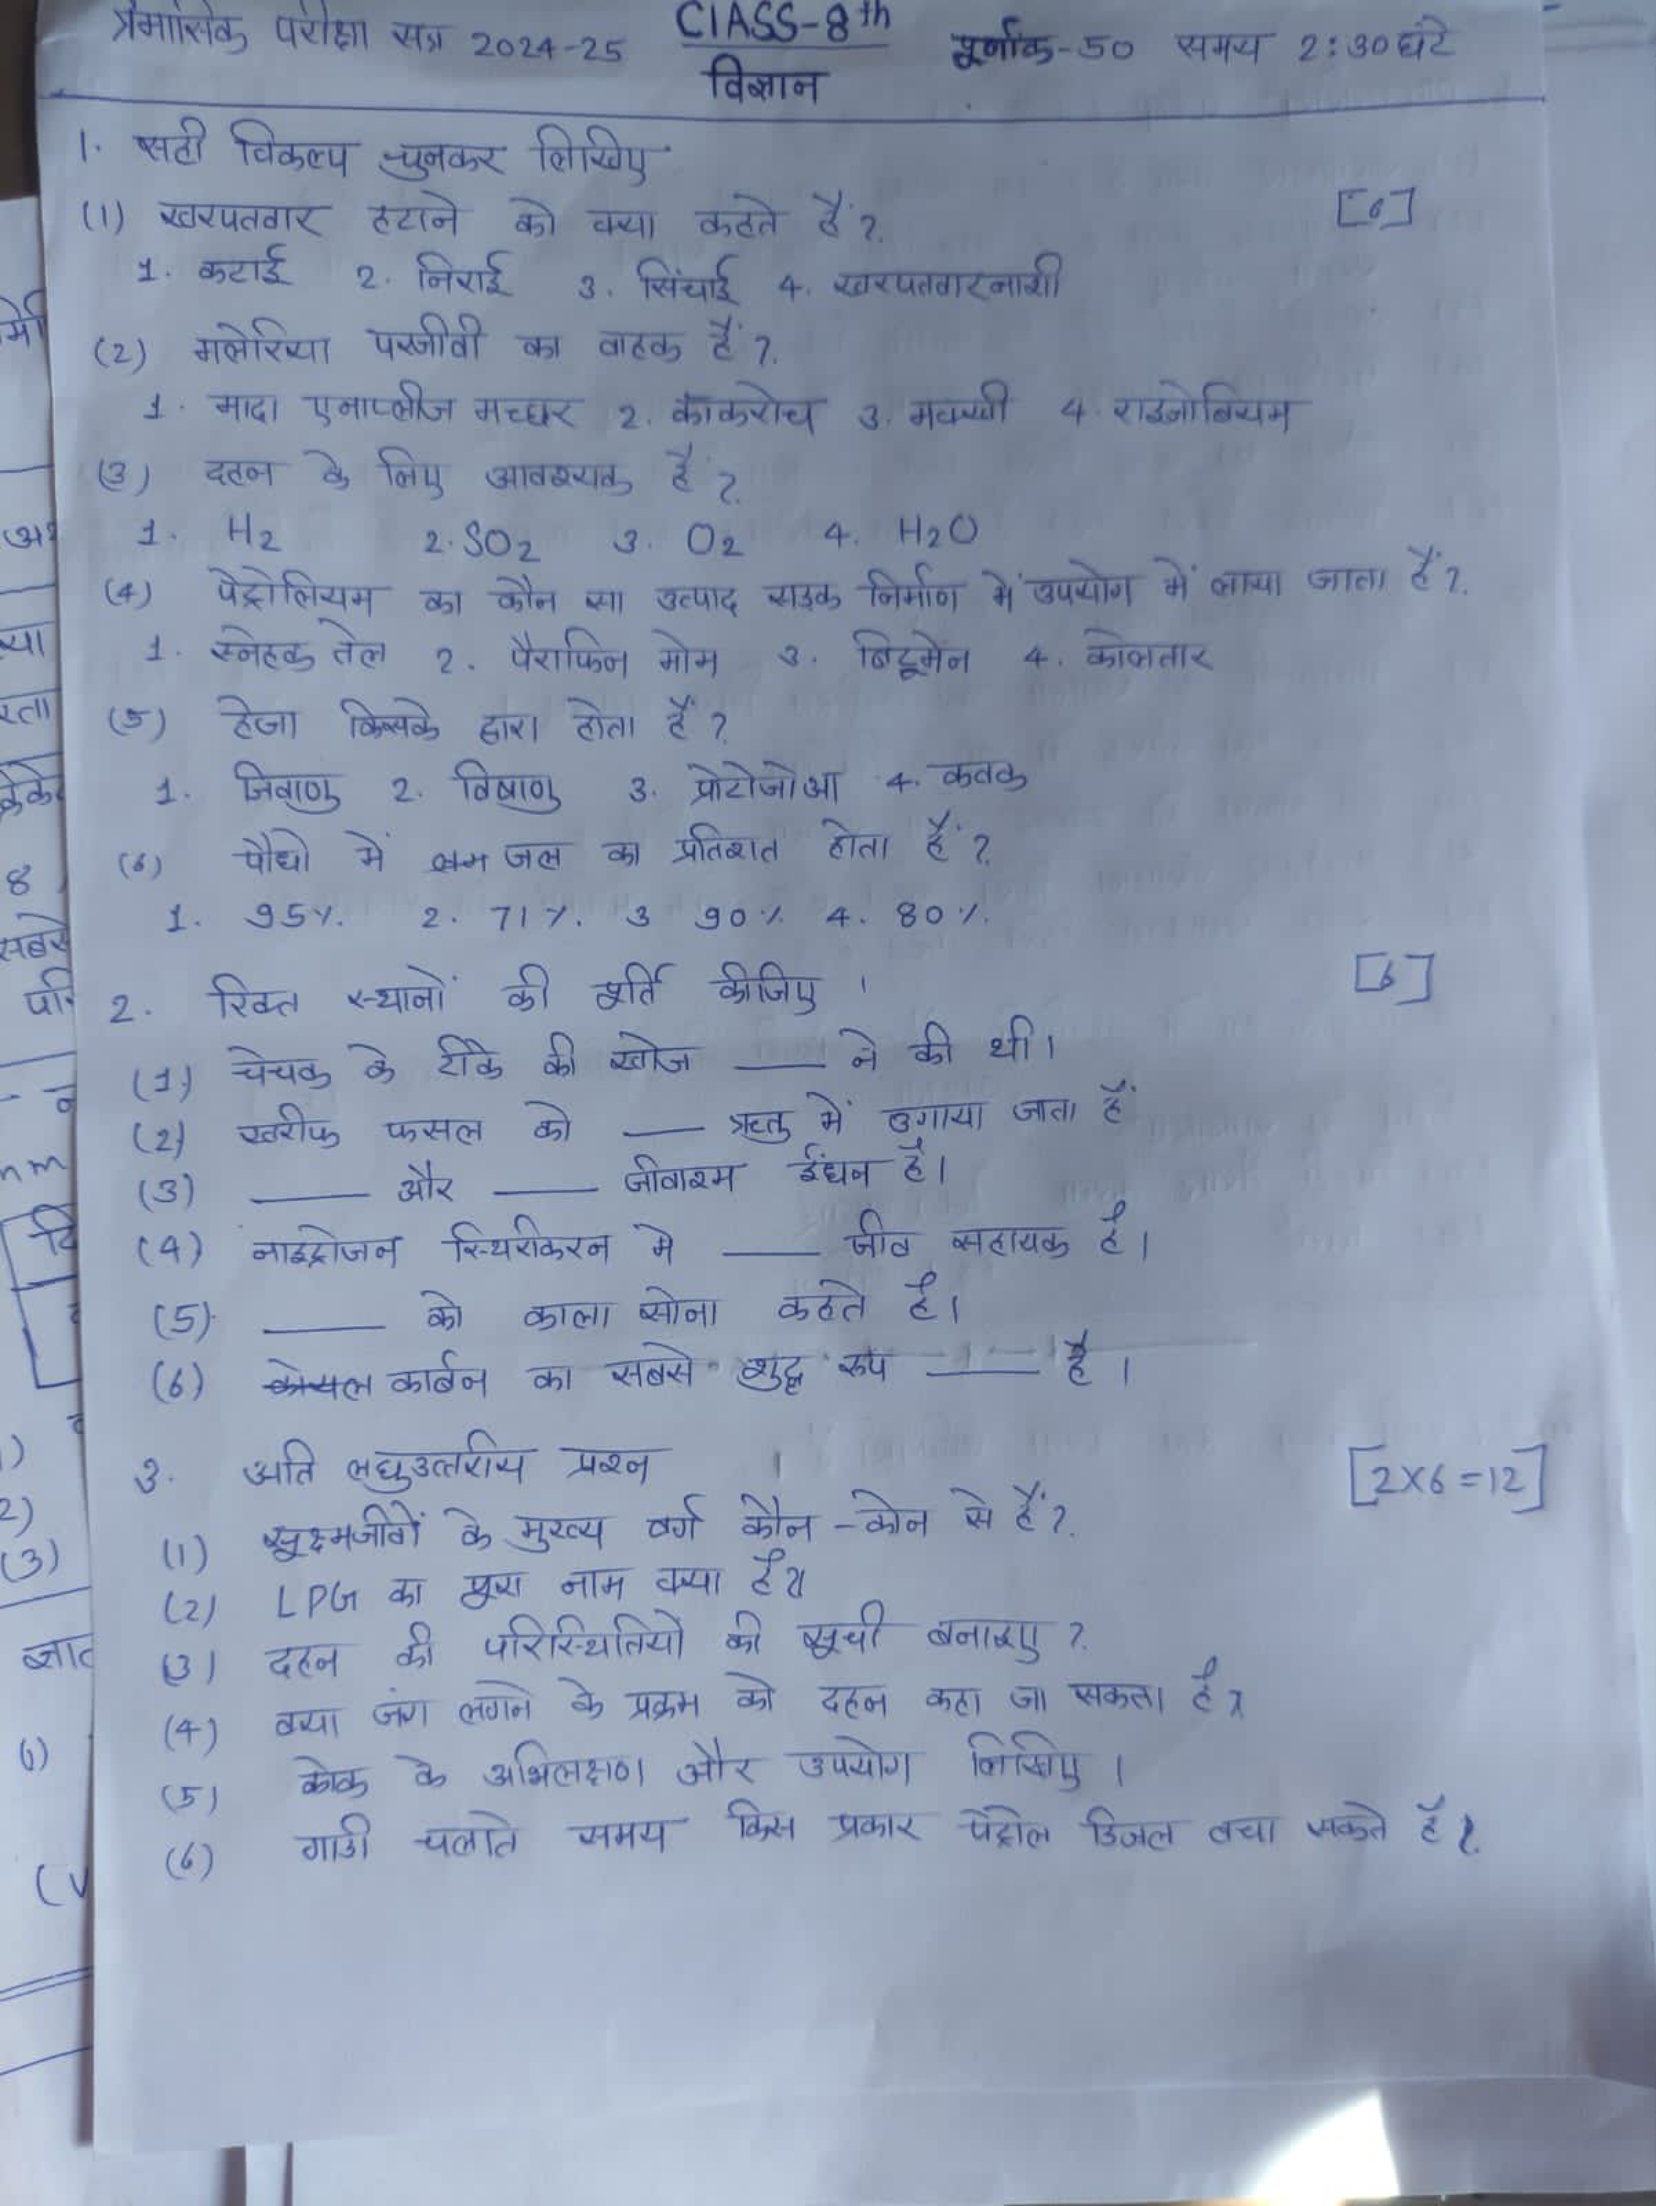 त्रैमासिक परीक्षा सत्र 2024-25 ClASS-8th पूर्णांक-50 समय 2:30 घंटे
विज्ञान
1. सही विकल्प चुनकर लिखिए
(1) खरपतवार हटाने को क्या कहते हैं? [6]
1. कटाई 2. निराई 3. सिंचाई 4. खरपतवारनाशी
(2) मलेरिया परजीवी का वाहक हैं?
1. मादा एनाप्लीज मच्छर 2. काकरोच 3. मक्खी 4. राइजोबियम
(3) दहन के लिए आवश्यक हैं?
1. H2 2. SO2 3. O2 4. H2O
(4) पेट्रोलियम का कौन सा उत्पाद सड़क निर्माण में उपयोग में लाया जाता हैं?
1. स्नेहक तेल 2. पैराफिन मोम 3. बिटूमेन 4. कोलतार
(5) हेजा किसके द्वारा होता हैं?
1. जिवाणु 2. विषाणु 3. प्रोटोजोआ 4. कवक
(6) पौधो में जल का प्रतिशत होता हैं?
1. 95%. 2. 71%. 3 90% 4. 80%.
2. रिक्त स्थानों की पूर्ति कीजिए । [6]
(1) चेचक के टीके की खोज ___ ने की थी।
(2) खरीफ फसल को ___ ऋतु में उगाया जाता हैं
(3) ___ और ___ जीवाश्म ईंधन है।
(4) नाइट्रोजन स्थिरीकरन मे ___ जीव सहायक है।
(5) ___ को काला सोना कहते है।
(6) कार्बन का सबसे शुद्ध रूप ___ है ।
3. अति लघुउत्तरीय प्रश्न [2x6=12]
(1) सूक्ष्मजीवों के मुख्य वर्ग कौन-कोन से हैं?
(2) LPG का पूरा नाम क्या है?
(3) दहन की परिस्थितियों की सूची बनाइए ?
(4) क्या जंग लगने के प्रक्रम को दहन कहा जा सकता है?
(5) कोक के अभिलक्षण और उपयोग लिखिए ।
(6) गाडी चलाते समय किस प्रकार पेट्रोल डिजल बचा सकते है?